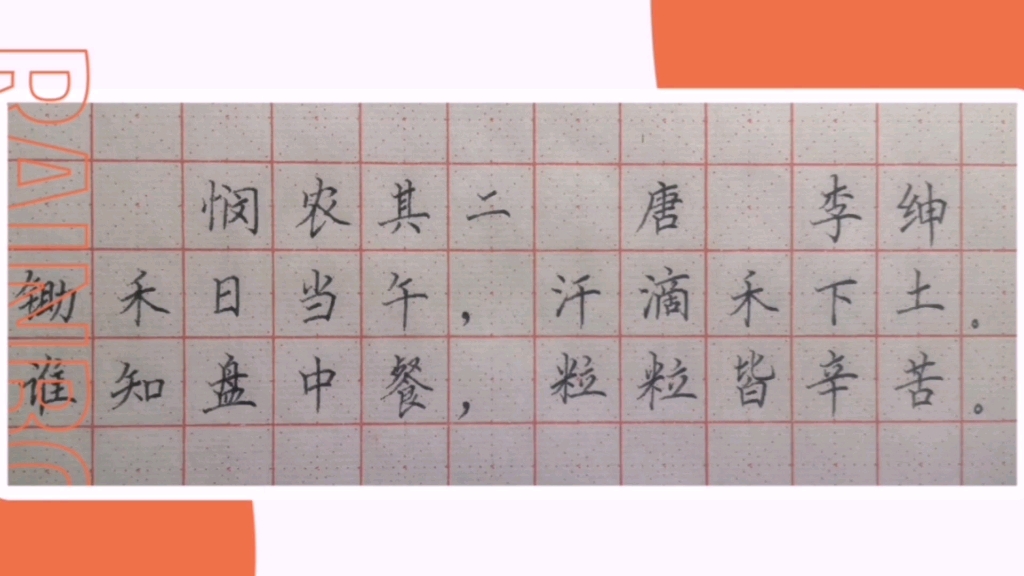 悯农其二 唐 李绅
锄禾日当午，汗滴禾下土。
谁知盘中餐，粒粒皆辛苦。
RAINBO